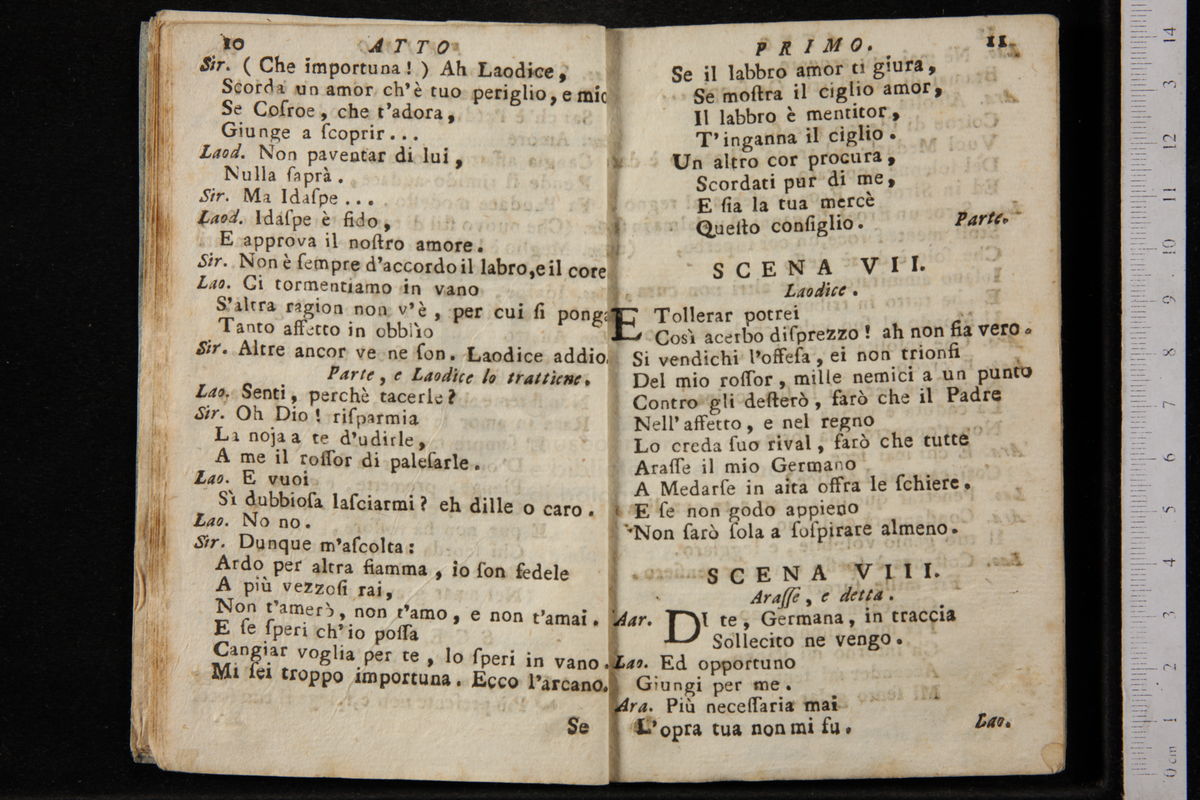 10 ATTO
Sir. ( Che importuna ! ) Ah Laodice,
Scorda un amor ch'è tuo periglio, e mio
Se Coſroe, che t'adora,
Giunge a ſcoprir...
Laod. Non paventar di lui,
Nulla ſaprà.
Sir. Ma Idaſpe...
Laod. Idaſpe è fido,
E approva il noſtro amore.
Sir. Non è ſempre d'accordo il labro, e il core
Lao. Ci tormentiamo in vano
S'altra ragion non v'è, per cui ſi ponga
Tanto affetto in obblìo
Sir. Altre ancor ve ne ſon. Laodice addio.
Parte, e Laodice lo trattiene.
Lao. Senti, perchè tacerle?
Sir. Oh Dio! riſparmia
La noja a te d'udirle,
A me il roſſor di paleſarle.
Lao. E vuoi
Sì dubbioſa laſciarmi? eh dille o caro.
Lao. No no.
Sir. Dunque m'aſcolta:
Ardo per altra fiamma, io ſon fedele
A più vezzoſi rai,
Non t'amerò, non t'amo, e non t'amai.
E ſe ſperi ch'io poſſa
Cangiar voglia per te, lo ſperi in vano.
Mi ſei troppo importuna. Ecco l'arcano.
Se
PRIMO. 11
Se il labbro amor ti giura,
Se moſtra il ciglio amor,
Il labbro è mentitor,
T'inganna il ciglio.
Un altro cor procura,
Scordati pur di me,
E ſia la tua mercè
Queſto conſiglio. Parte.
SCENA VII.
Laodice.
E Tollerar potrei
Così acerbo diſprezzo! ah non ſia vero.
Si vendichi l'offeſa, ei non trionfi
Del mio roſſor, mille nemici a un punto
Contro gli deſterò, farò che il Padre
Nell'affetto, e nel regno
Lo creda ſuo rival, farò che tutte
Araſſe il mio Germano
A Medarſe in aita offra le ſchiere.
E ſe non godo appieno
Non ſarò ſola a ſoſpirare almeno.
SCENA VIII.
Araſſe, e detta.
Aar. DI te, Germana, in traccia
Sollecito ne vengo.
Lao. Ed opportuno
Giungi per me.
Ara. Più neceſſaria mai
L'opra tua non mi fu. Lao.
0 cm 1 2 3 4 5 6 7 8 9 10 11 12 13 14